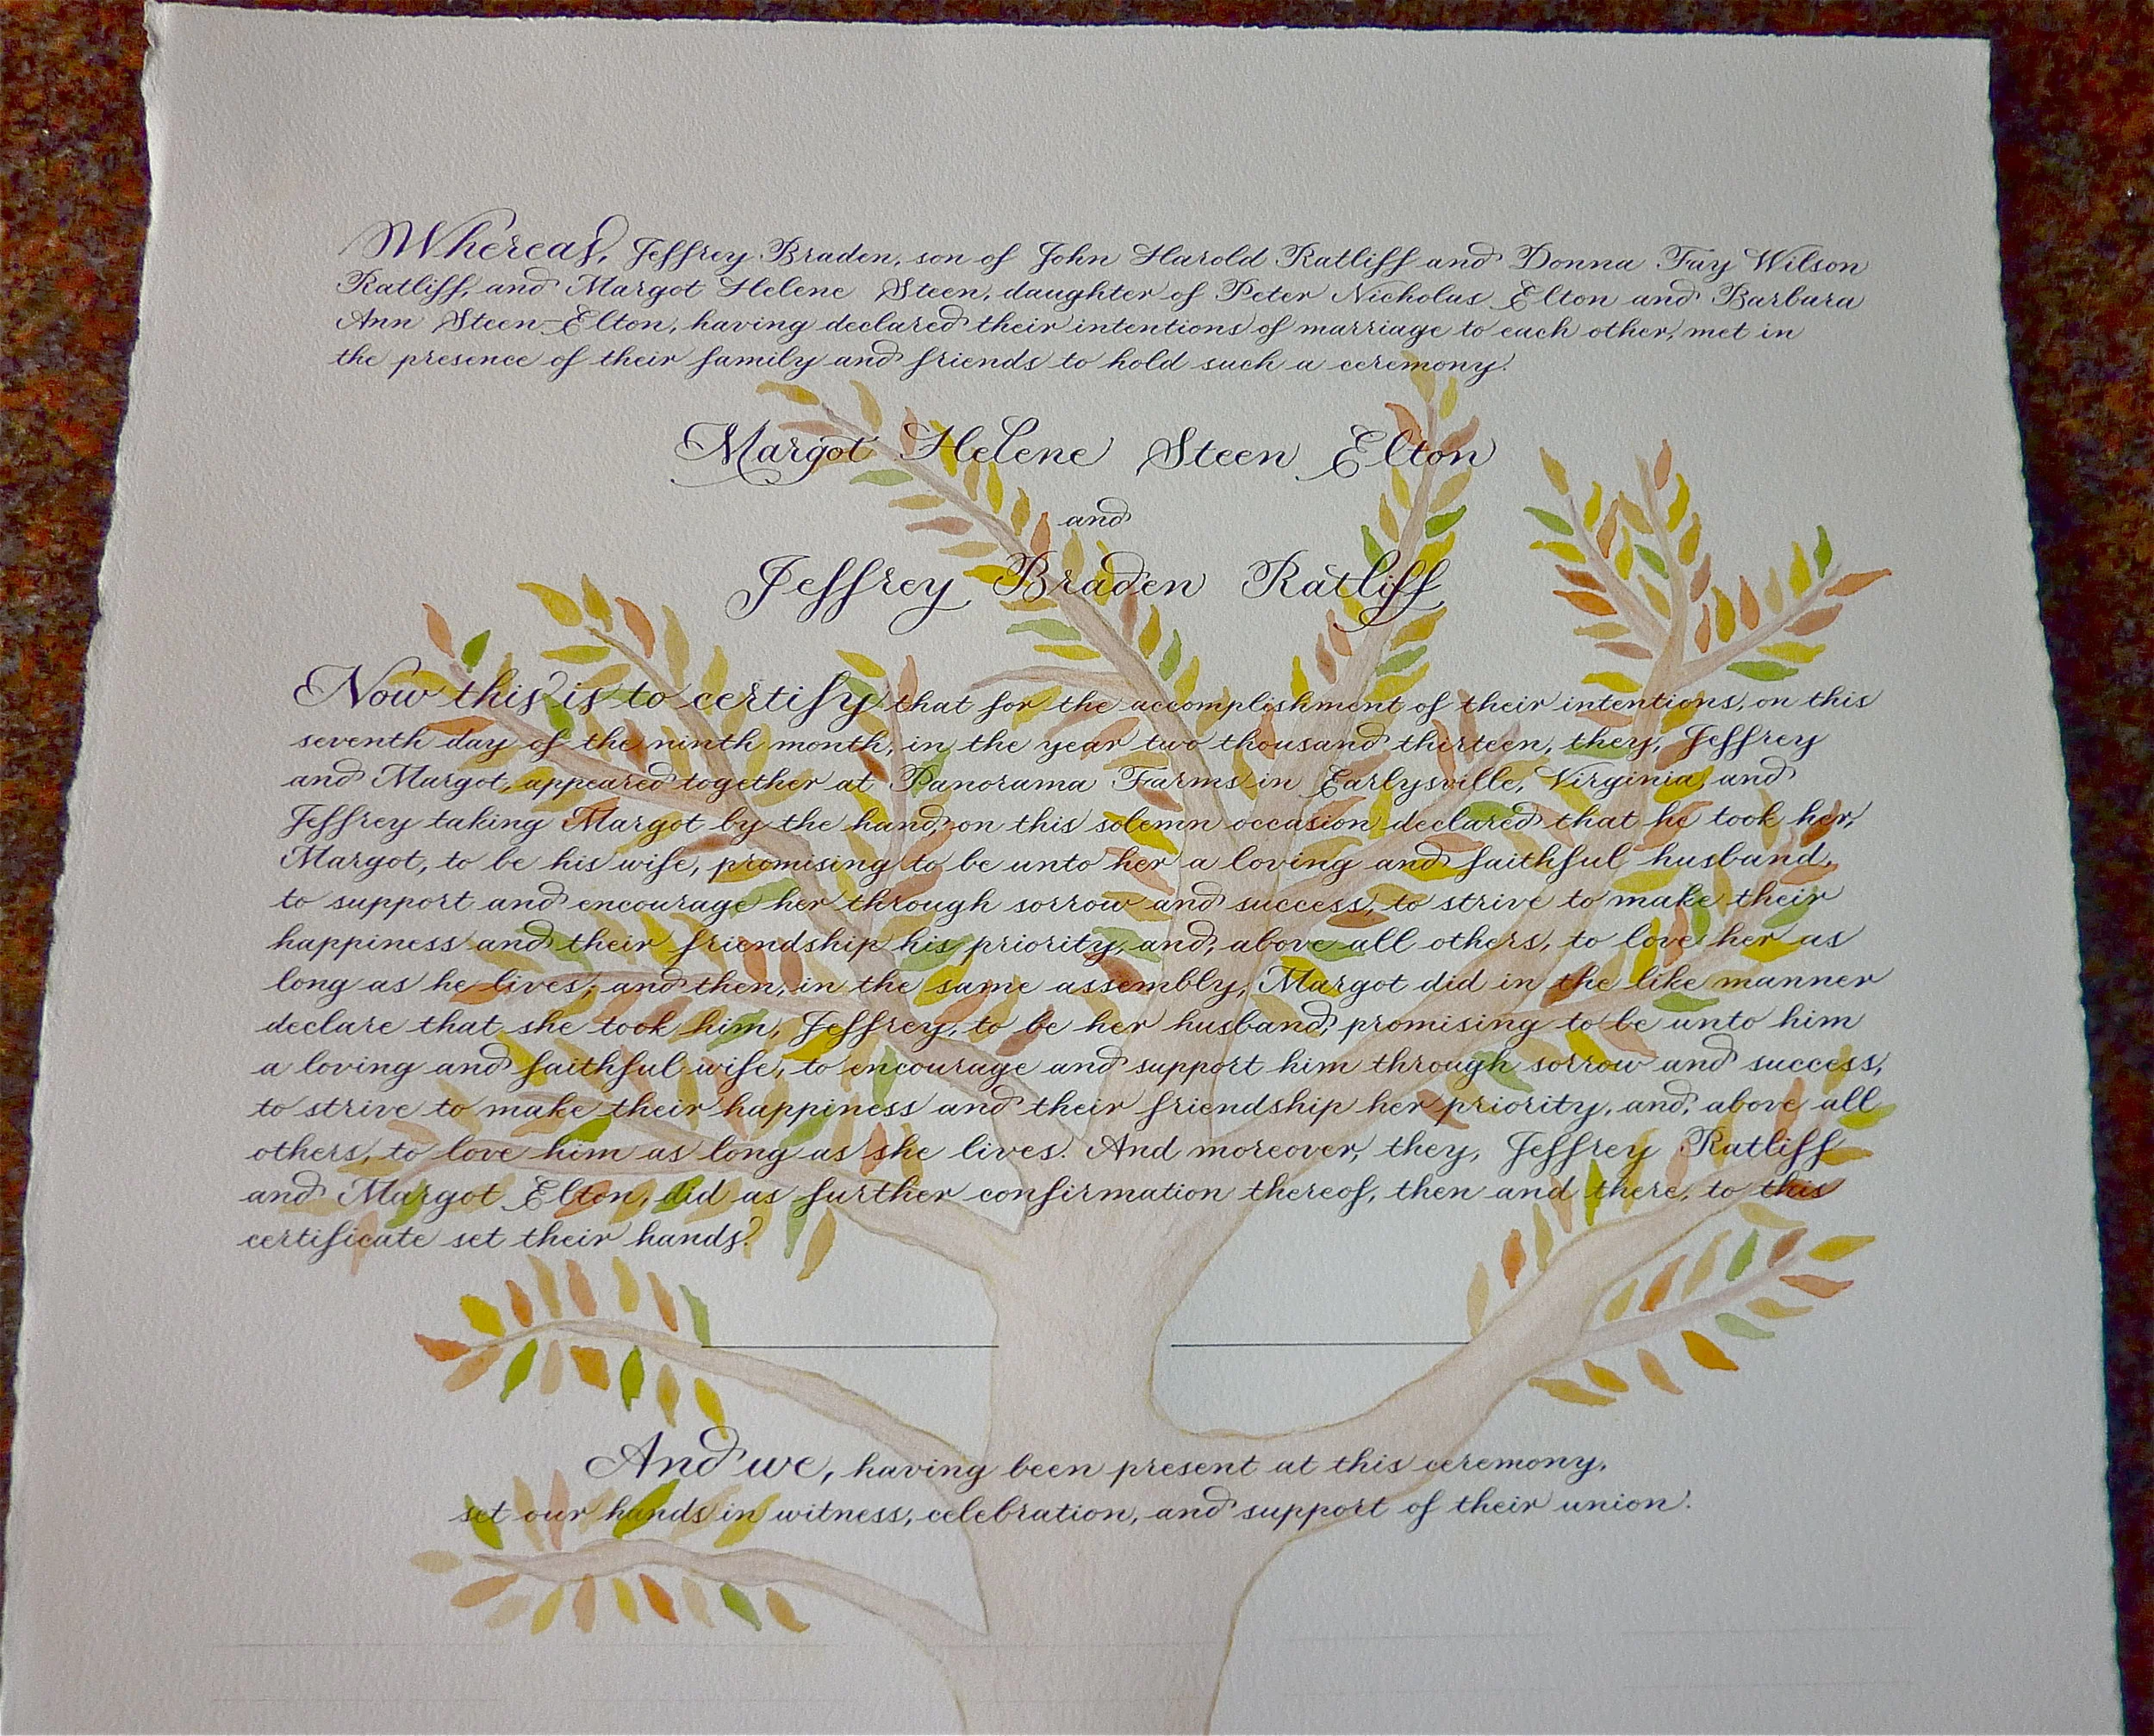 Whereas, Jeffrey Braden, son of John Harold Ratliff and Donna Fay Wilson
Ratliff, and Margot Helene Steen, daughter of Peter Nicholas Elton and Barbara
Ann Steen-Elton, having declared their intentions of marriage to each other, met in
the presence of their family and friends to hold such a ceremony.
Margot Helene Steen Elton
and
Jeffrey Braden Ratliff
Now this is to certify that for the accomplishment of their intentions, on this
seventh day of the ninth month, in the year two thousand thirteen, they, Jeffrey
and Margot, appeared together at Panorama Farms in Earlysville, Virginia, and
Jeffrey taking Margot by the hand, on this solemn occasion declared that he took her,
Margot, to be his wife, promising to be unto her a loving and faithful husband,
to support and encourage her through sorrow and success, to strive to make their
happiness and their friendship his priority, and, above all others, to love her as
long as he lives; and then, in the same assembly, Margot did in the like manner
declare that she took him, Jeffrey, to be her husband, promising to be unto him
a loving and faithful wife, to encourage and support him through sorrow and success,
to strive to make their happiness and their friendship her priority, and, above all
others, to love him as long as she lives. And moreover, they, Jeffrey Ratliff
and Margot Elton, did as further confirmation thereof, then and there, to this
certificate set their hands.
And we, having been present at this ceremony,
set our hands in witness, celebration, and support of their union.